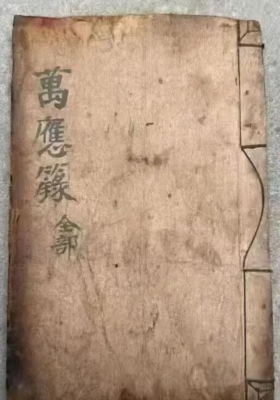 萬應籙
全部